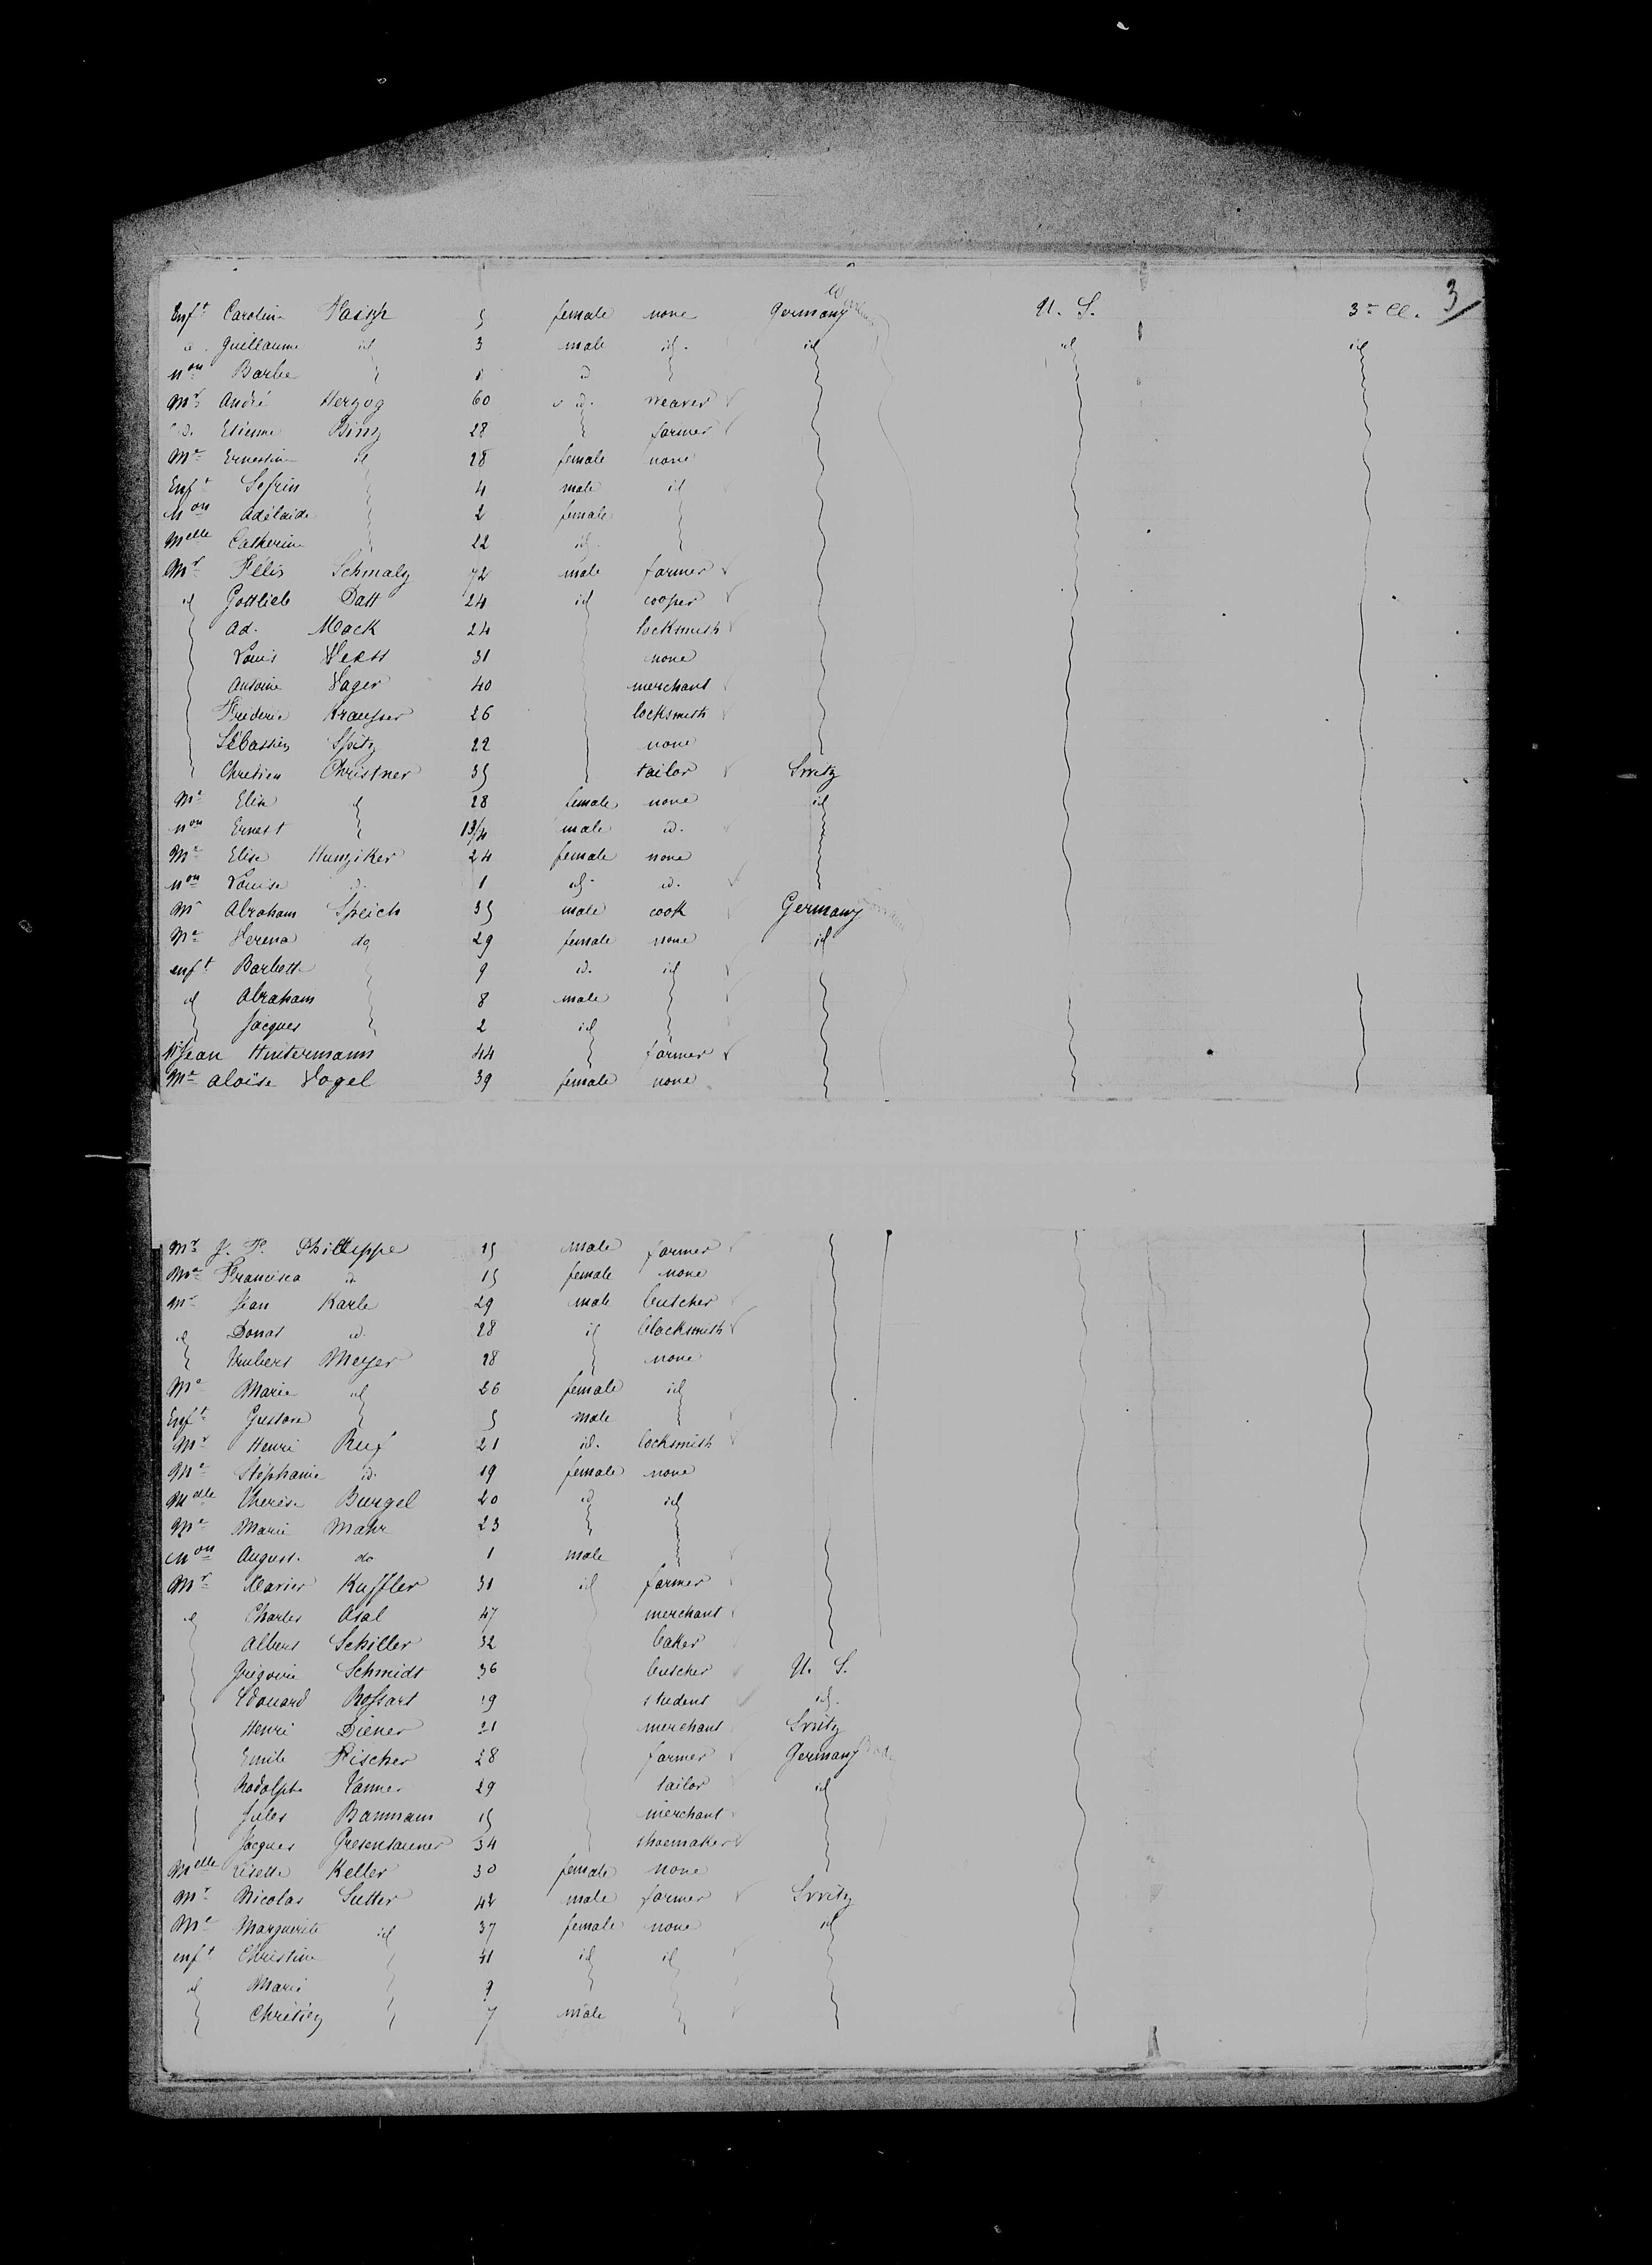 3
Enft Caroline 5 female none Germany U. S. 3e Cl.
id. Guillaume id 3 male id. id id id
non Barbe 1 id
Mr André Herzog 60 id. weaver
id. Etienne Binz 28 farmer
Me Ernestine id 28 female none
Enft Sefrin 4 male id
non Adélaide 2 female
Melle Catherine 22 id
Mr Félix Schmalz 72 male farmer
id Gottlieb Datt 24 id cooper
Ad. Mack 24 locksmith
Louis 31 none
Antoine Vager 40 merchant
Frédéric 26 locksmith
Sébastien Spitz 22 none
Chretien Christner 35 tailor Switz
Me Elise id 28 female none id
non Ernest 13/4 male id.
Me Elise Hunziker 24 female none
non Louise id. 1 id. id.
Mr Abraham Speich 35 male cook Germany
Me Verena do 29 female none id
enft Barbette 9 id. id
id Abraham 8 male
Jacques 2 id
Mr Jean Hintermann 44 farmer
Me Aloïse Vogel 39 female none
Mr J. P. Philleppe 25 male farmer
Me Francisca id 25 female none
Mr Jean Karle 29 male butcher
id Donat id. 28 id blacksmith
Humbert Meyer 28 none
Me Marie id 26 female id
Enft Gustave 5 male
Mr Henri Ruf 21 id. locksmith
Me Stéphanie id. 19 female none
Melle Therèse Burgel 20 id id
Me Marie Mahr 23
non August. do 1 male
Mr Xavier Kuffler 31 id farmer
id Charles Asal 47 merchant
Albert Schiller 32 baker
Grégoire Schmidt 36 butcher U. S.
Edouard Rossart 19 student id.
Henri Diener 21 merchant Switz
Emile Fischer 28 farmer Germany
Rodolphe Vanner 29 tailor id
Jules Bammann 25 merchant
Jacques 34 shoemaker
Melle Lisette Keller 30 female none
Mr Nicolas Sutter 42 male farmer Switz
Me Marguerite id 37 female none id
enft Christine 11 id id
id Marie 9
Chrétien 7 male